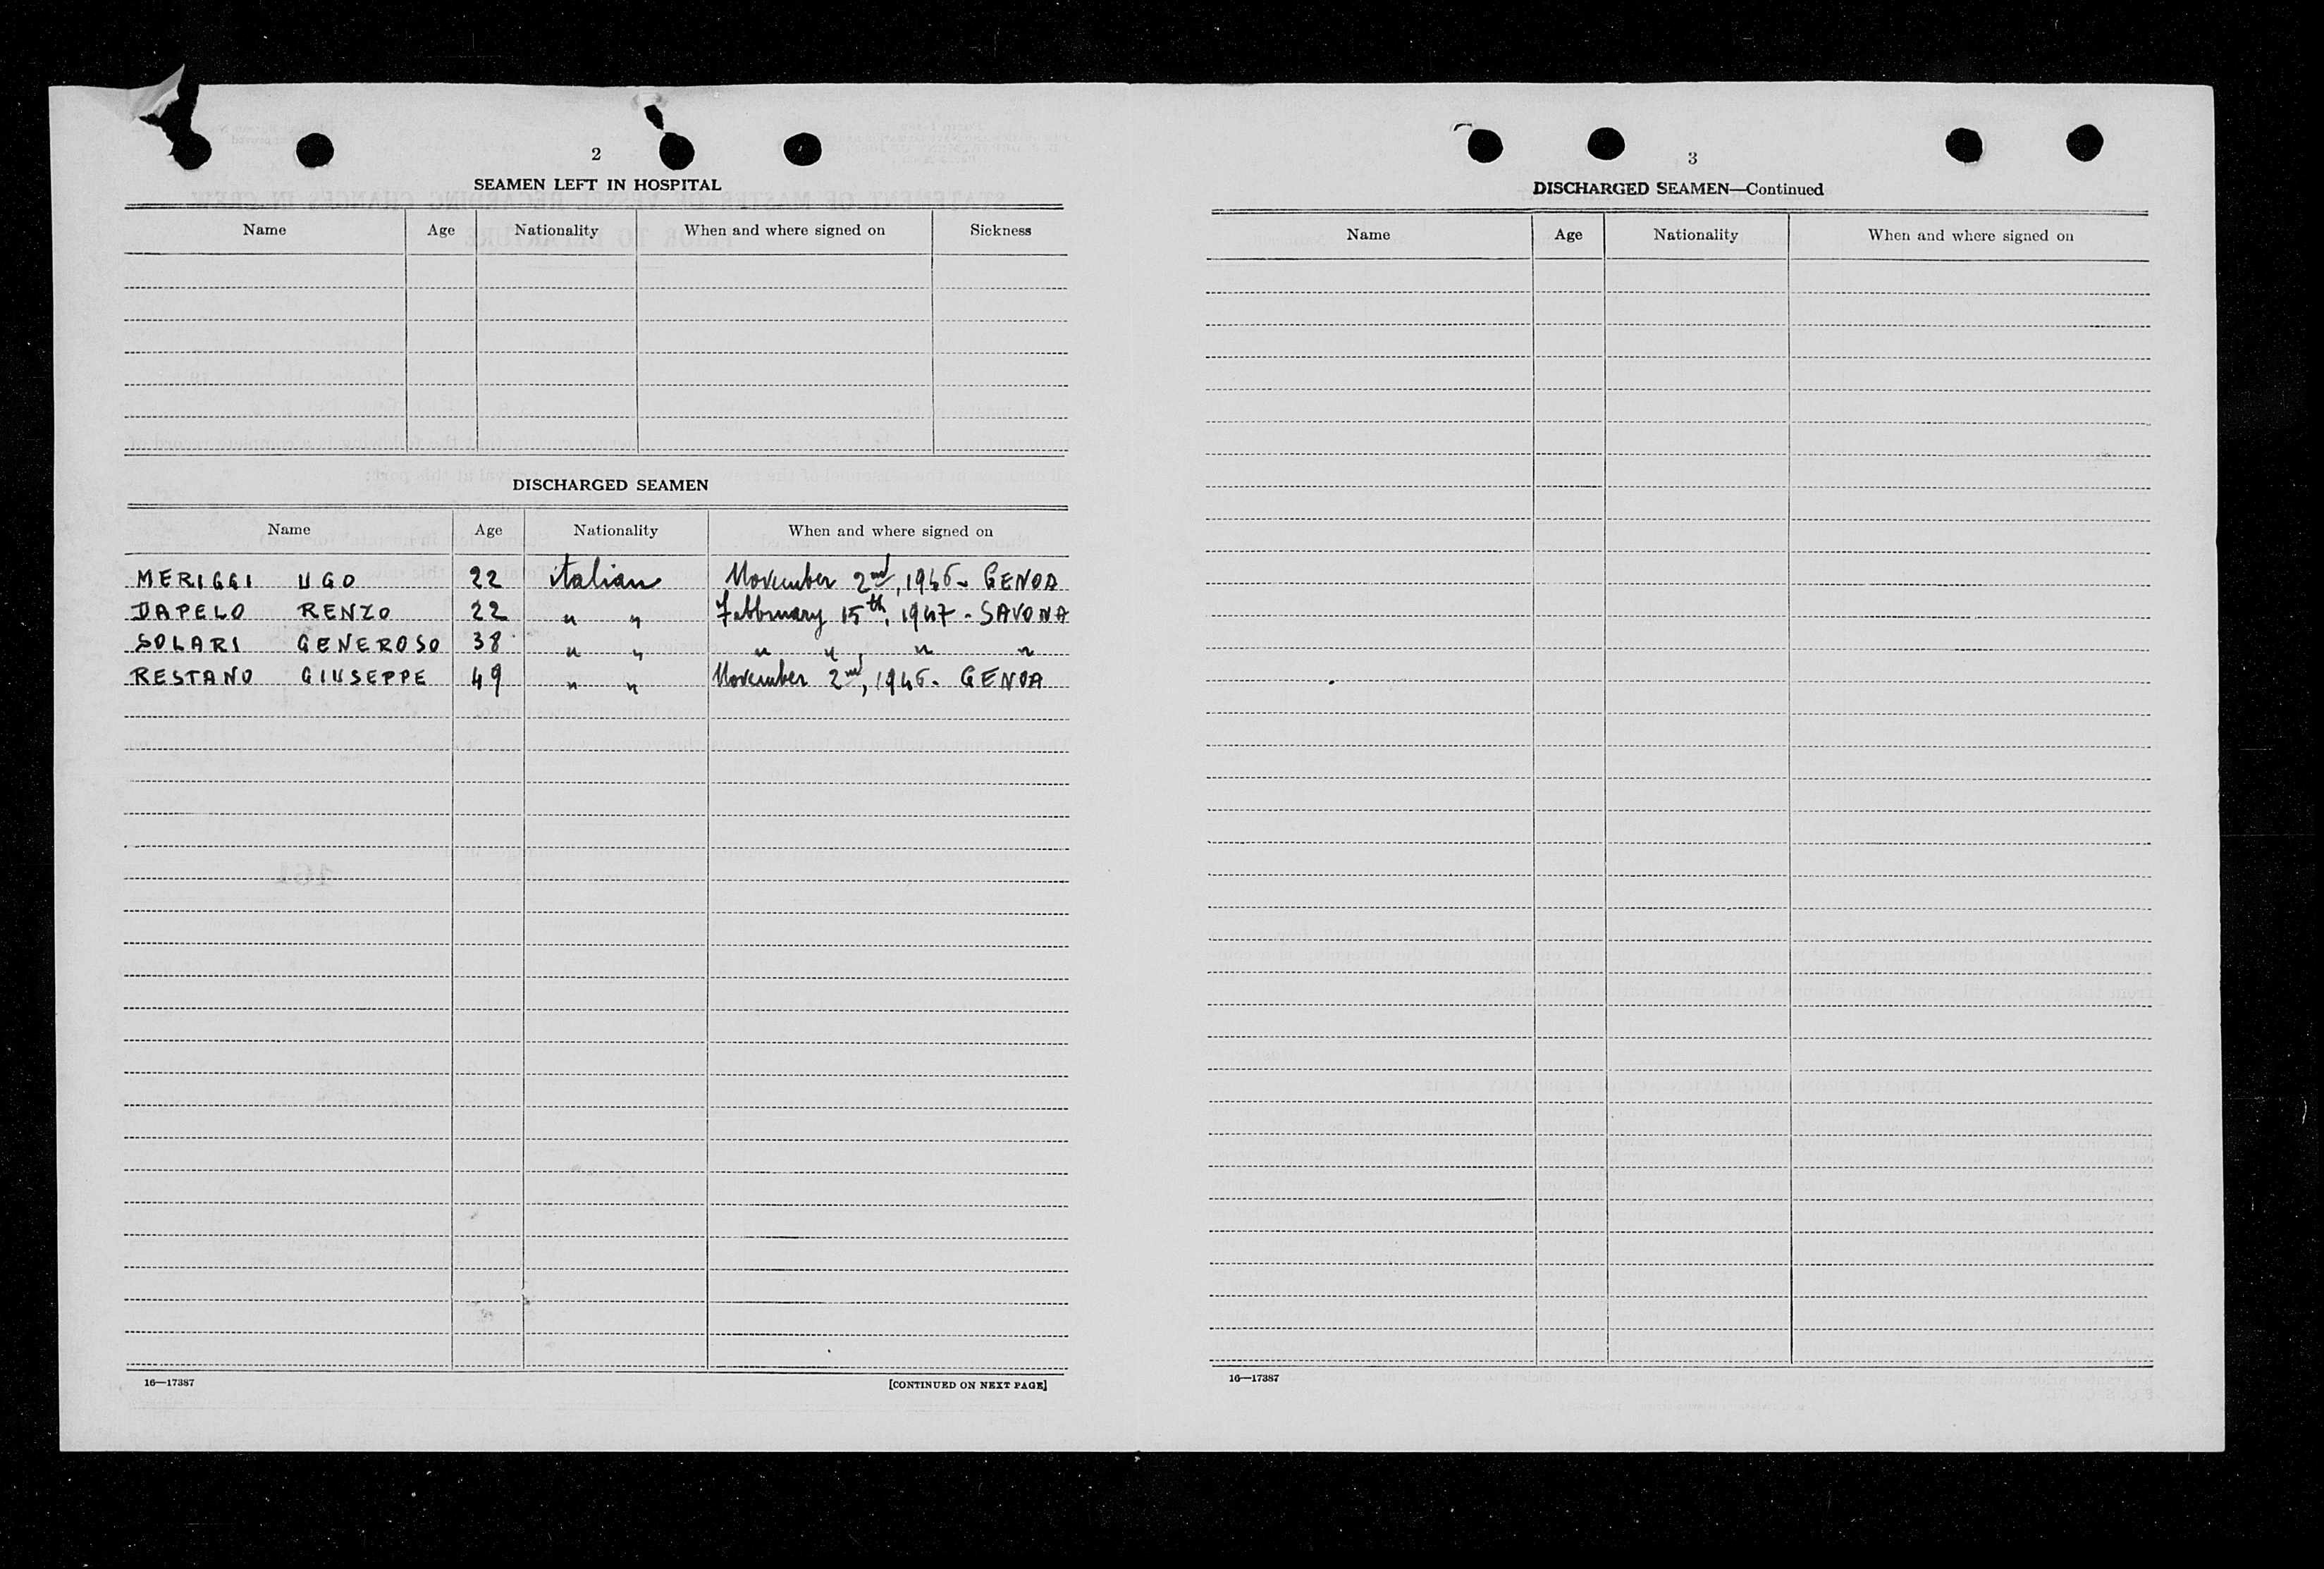 2
SEAMEN LEFT IN HOSPITAL
Name Age Nationality When and where signed on Sickness
DISCHARGED SEAMEN
Name Age Nationality When and where signed on
MERIGGI UGO 22 italian November 2nd, 1946 - GENOA
DAPELO RENZO 22 " " Febbruary 15th, 1947 - SAVONA
SOLARI GENEROSO 38 " " " " " "
RESTANO GIUSEPPE 49 " " November 2nd, 1946 - GENOA
16—17387 [CONTINUED ON NEXT PAGE]
3
DISCHARGED SEAMEN—Continued
Name Age Nationality When and where signed on
16—17387